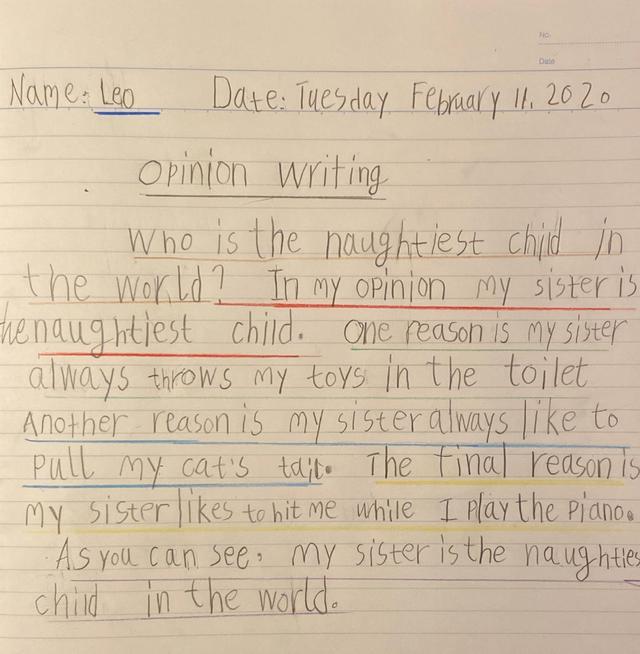 No.
Date
Name: Leo Date: Tuesday February 11, 2020
Opinion Writing
Who is the naughtiest child in
the world? In my opinion my sister is
he naughtiest child. One reason is my sister
always throws my toys in the toilet
Another reason is my sister always like to
pull my cat's tail. The final reason is
my sister likes to hit me while I play the piano.
As you can see, my sister is the naughties
child in the world.